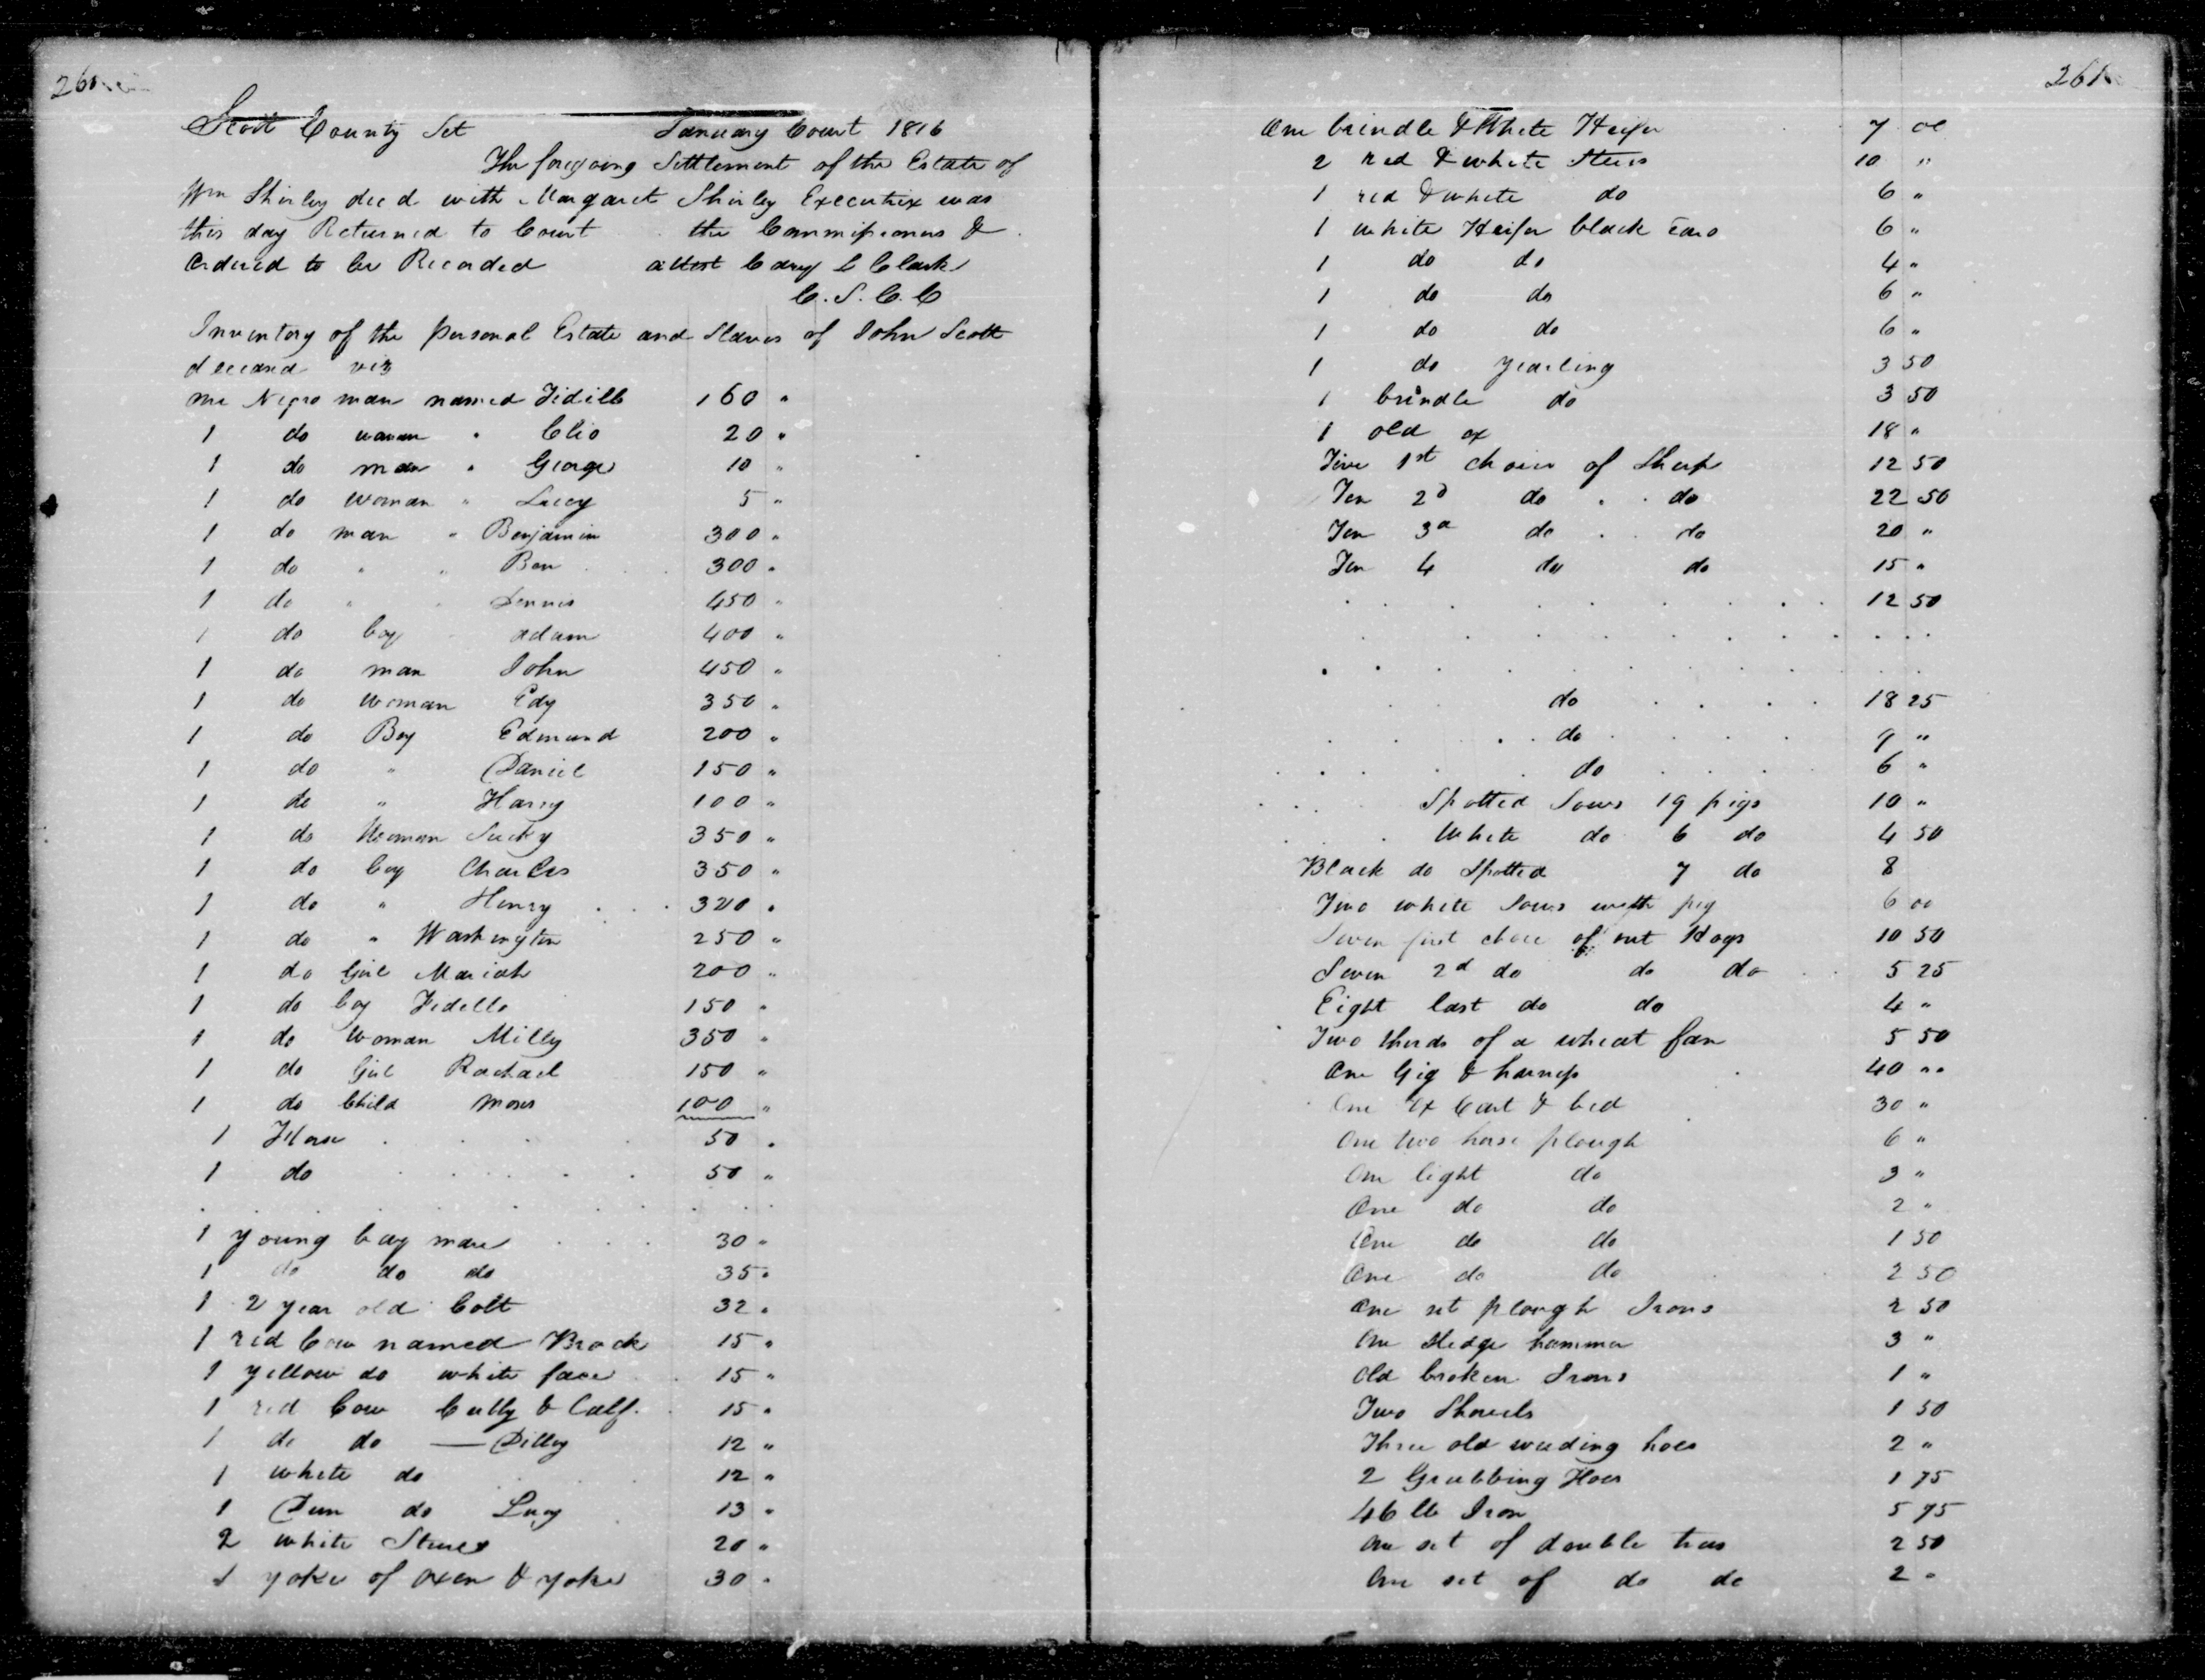 260
Scott County Sct January Court 1816
The foregoing Settlement of the Estate of
Wm Shirley decd with Margaret Shirley Executrix was
this day Returned to Court . the Commissioners &
ordered to be Recorded attest Cary L Clark
C. S. C. C
Inventory of the personal Estate and Slaves of John Scott
deceased viz
one Negro man named Fidill 160 "
1 do woman " Clio 20 "
1 do man " George 10 "
1 do woman " Lucy 5 "
1 do man " Benjamin 300 "
1 do " " Ben 300 "
1 do " " Dennis 450 "
1 do boy " adam 400 "
1 do man John 450 "
1 do woman Edy 350 "
1 do Boy Edmund 200 "
1 do " Daniel 150 "
1 do " Harry 100 "
1 do Woman Sucky 350 "
1 do boy Charles 350 "
1 do " Henry 320 "
1 do " Washington 250 "
1 do Girl Mariah 200 "
1 do boy Fidello 150 "
1 do Woman Milly 350 "
1 do Girl Rachael 150 "
1 do Child Moses 100 "
1 Horse 50 "
1 do 50 "
1 young bay mare 30 "
1 do do do 35 "
1 2 year old Colt 32 "
1 red Cow named Brock 15 "
1 yellow do white face 15 "
1 red Cow Cutty & Calf 15 "
1 do do — Dilly 12 "
1 white do 12 "
1 Dun do Lucy 13 "
2 white Steers 20 "
1 yoke of oxen & yoke 30 "
261
One brindle & White Heifer 7 00
2 red & white Steers 10 "
1 red & white do 6 "
1 white Heifer black Ears 6 "
1 do do 4 "
1 do do 6 "
1 do do 6 "
1 do yearling 3 50
1 brindle do 3 50
1 old ox 18 "
Five 1st choice of Sheep 12 50
Ten 2d do do 22 50
Ten 3d do do 20 "
Ten 4 do do 15 "
12 50
do 18 25
do 9 "
do 6 "
Spotted Sows 19 pigs 10 "
White do 6 do 4 50
Black do Spotted 7 do 8
Two white Sows with pig 6 00
Seven first choice of out Hogs 10 50
Seven 2d do do do 5 25
Eight last do do 4 "
Two thirds of a wheat fan 5 50
One Gig & harness 40 "
One Ox Cart & bed 30 "
One two horse plough 6 "
One light do 3 "
One do do 2 "
One do do 1 50
One do do 2 50
One set plough Irons 2 50
One sledge hammer 3 "
Old broken Irons 1 "
Two Shovels 1 50
Three old weeding hoes 2 "
2 Grubbing Hoes 1 75
46 lb Iron 5 75
One set of double trees 2 50
One set of do do 2 "